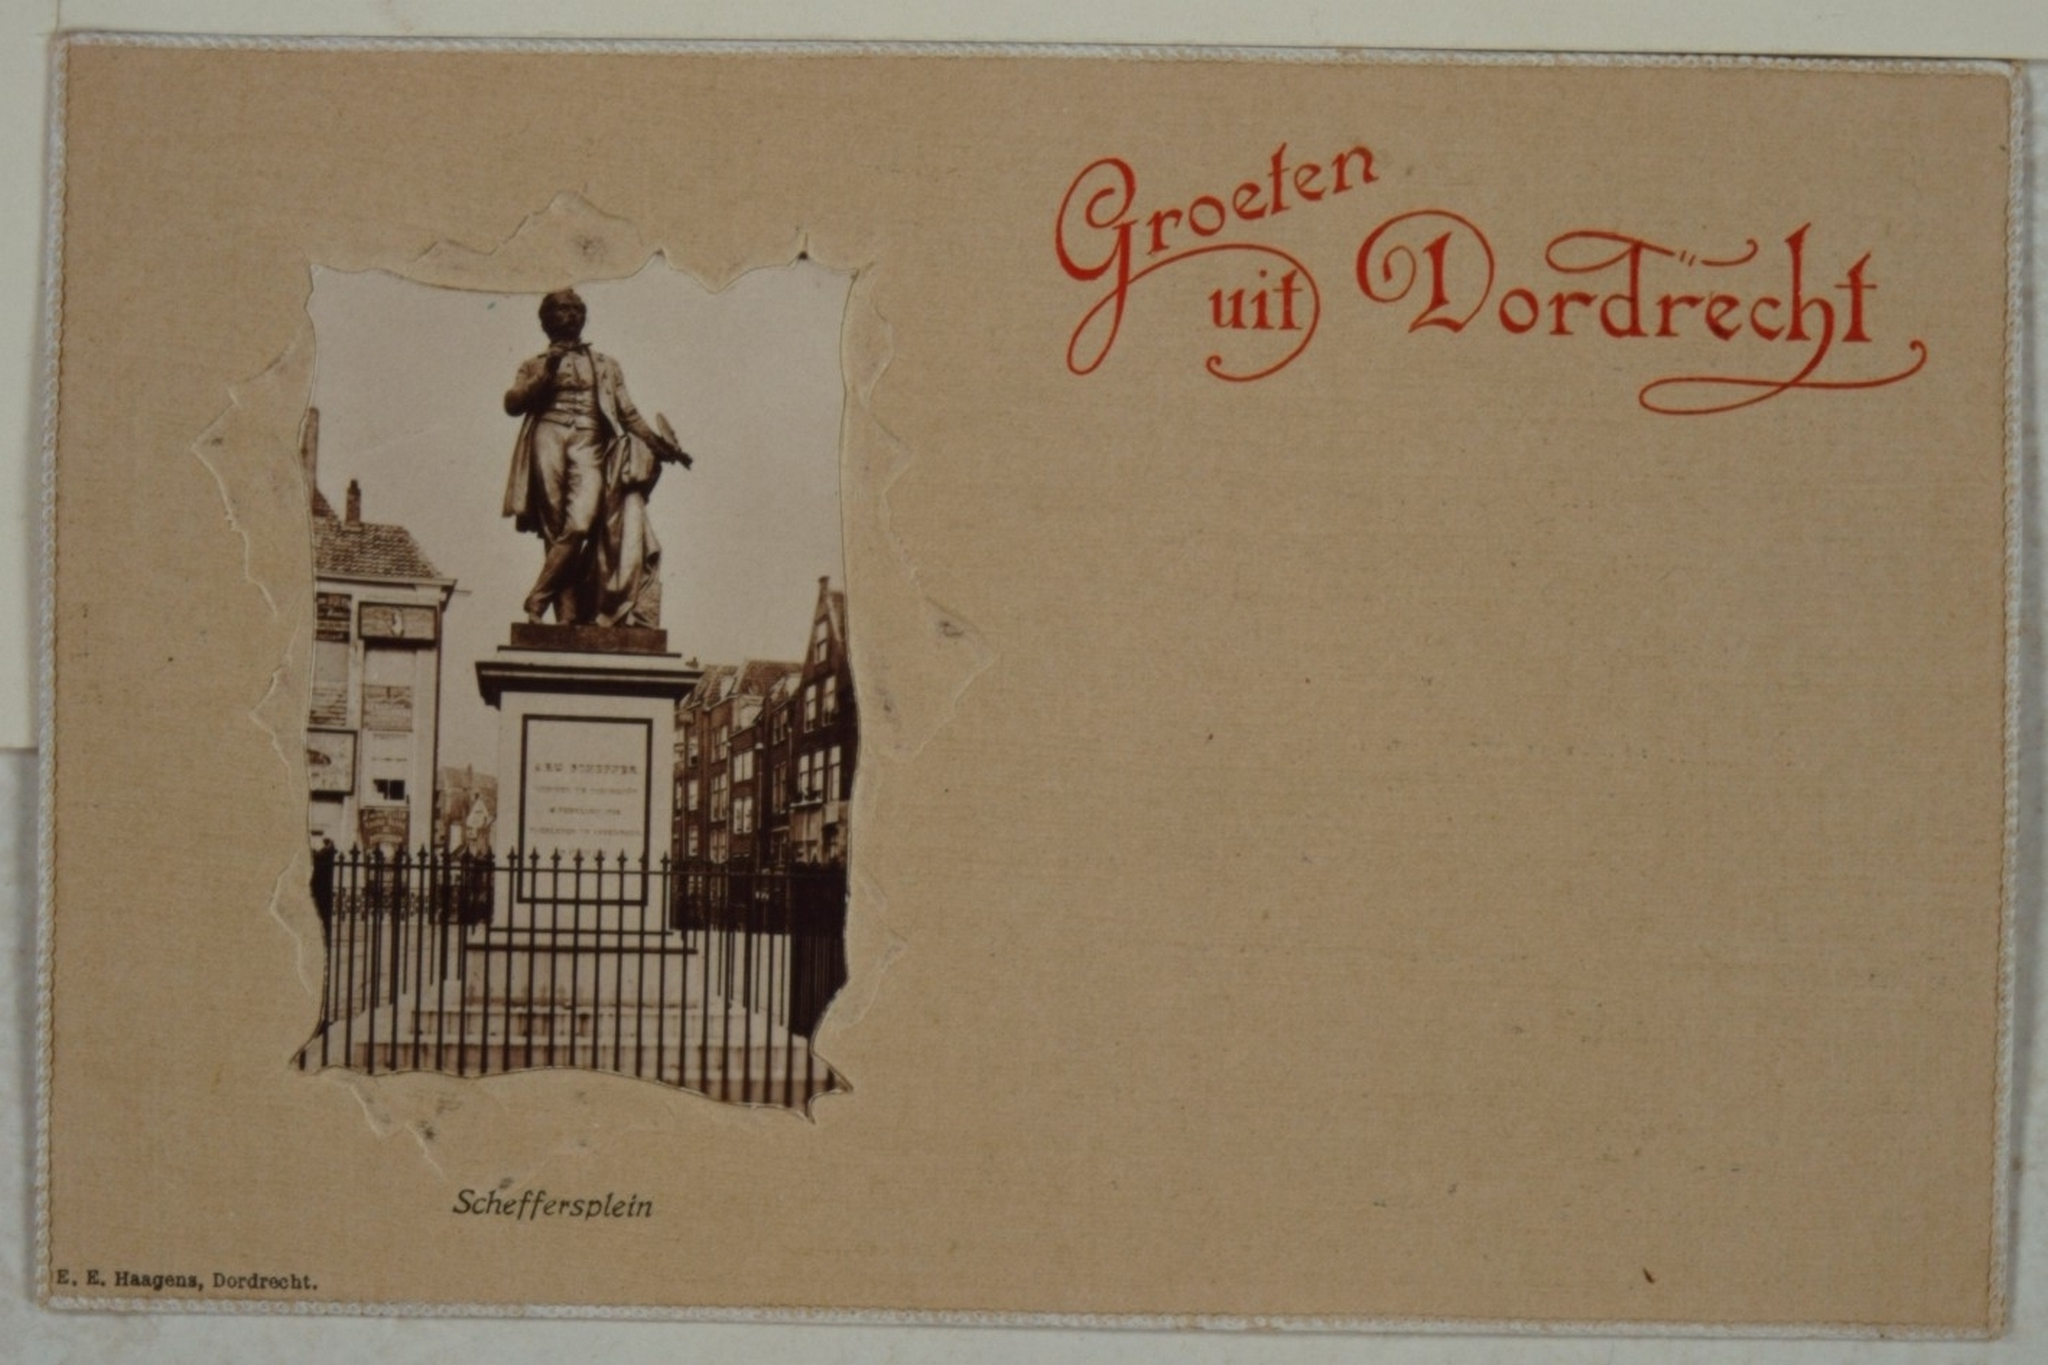 Groeten
uit Dordrecht
ARY SCHEFFER
Scheffersplein
E. E. Haagens, Dordrecht.